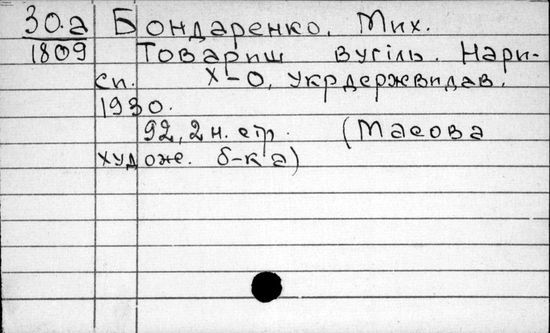 30.а Бондаренко, Мих.
1809 Товариш вугіль. Нари-
си. Х-О, Укрдержвидав.
1930.
92, 2 н. стр. (Масова
худож. б-ка)